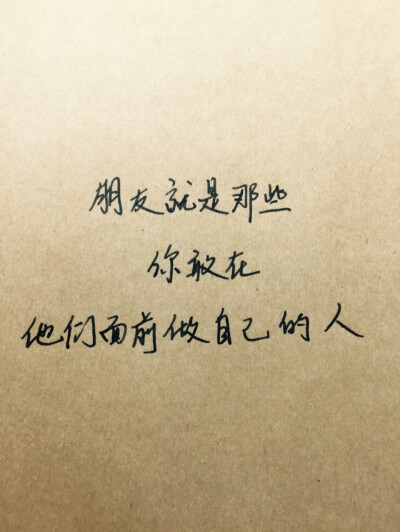 朋友就是那些
你敢在
他们面前做自己的人